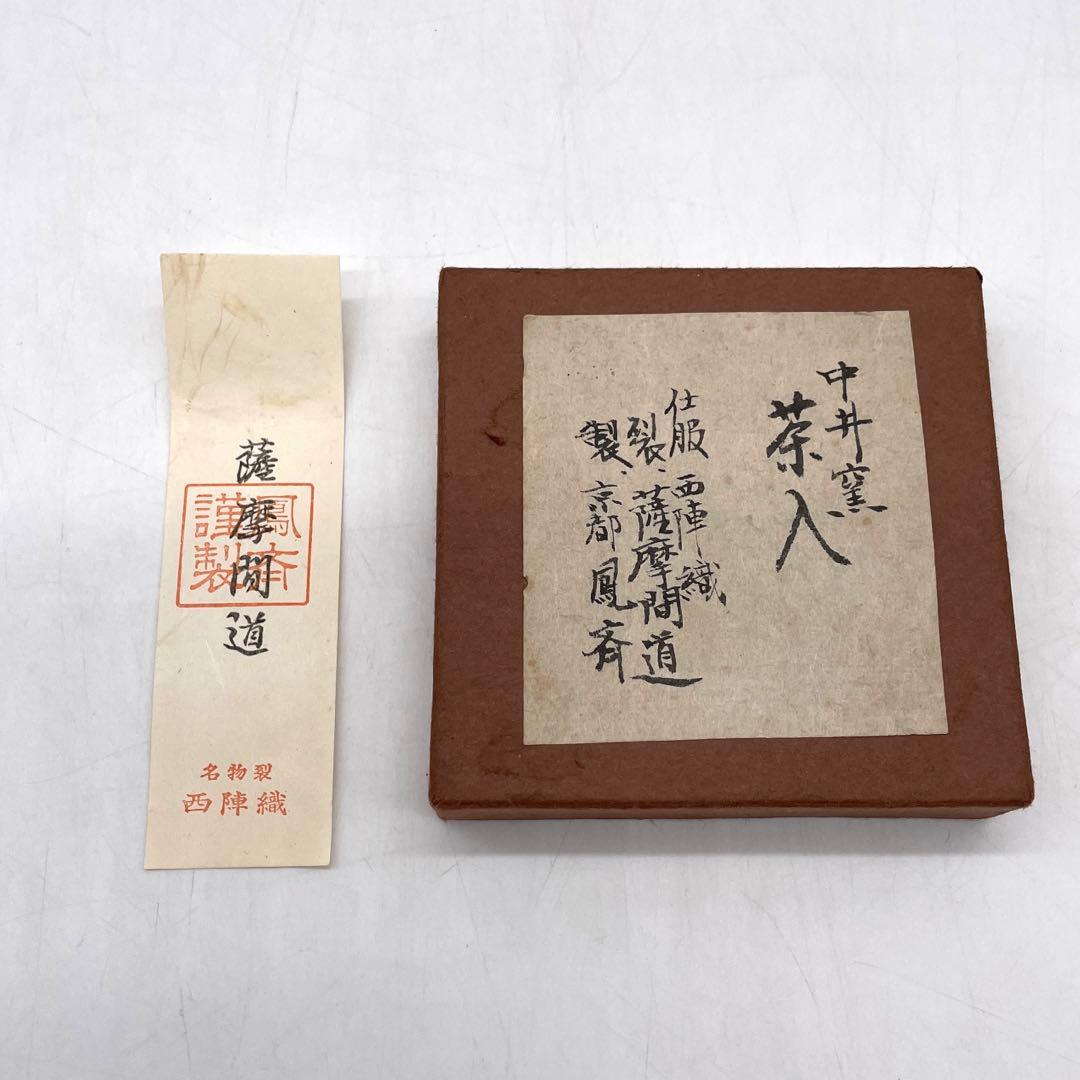 薩摩間道
鳳斉
謹製
名物裂
西陣織
中井窯
茶入
仕服 西陣織
裂、薩摩間道
製、京都鳳斉